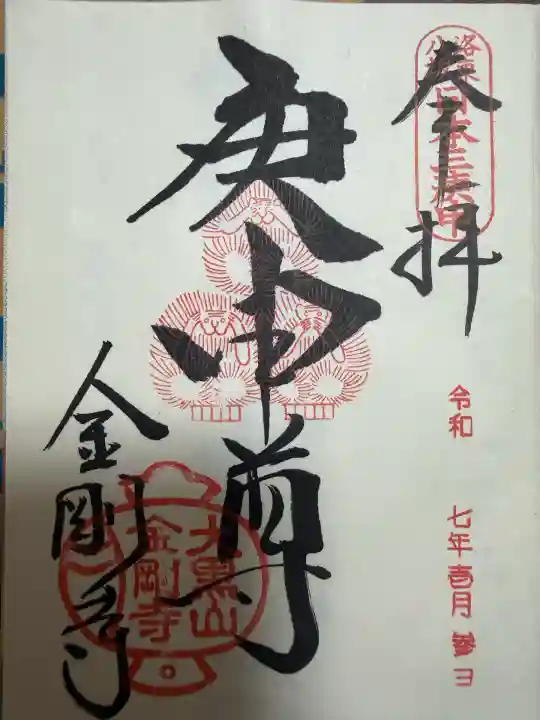 奉拝
洛東
日本三庚申
令和 七年壱月参日
庚申尊
金剛寺
大黒山
金剛寺